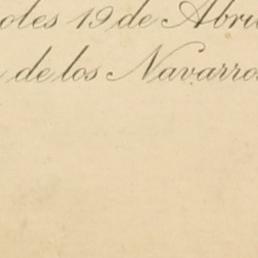 oles 19 de Abri
de los Navarros